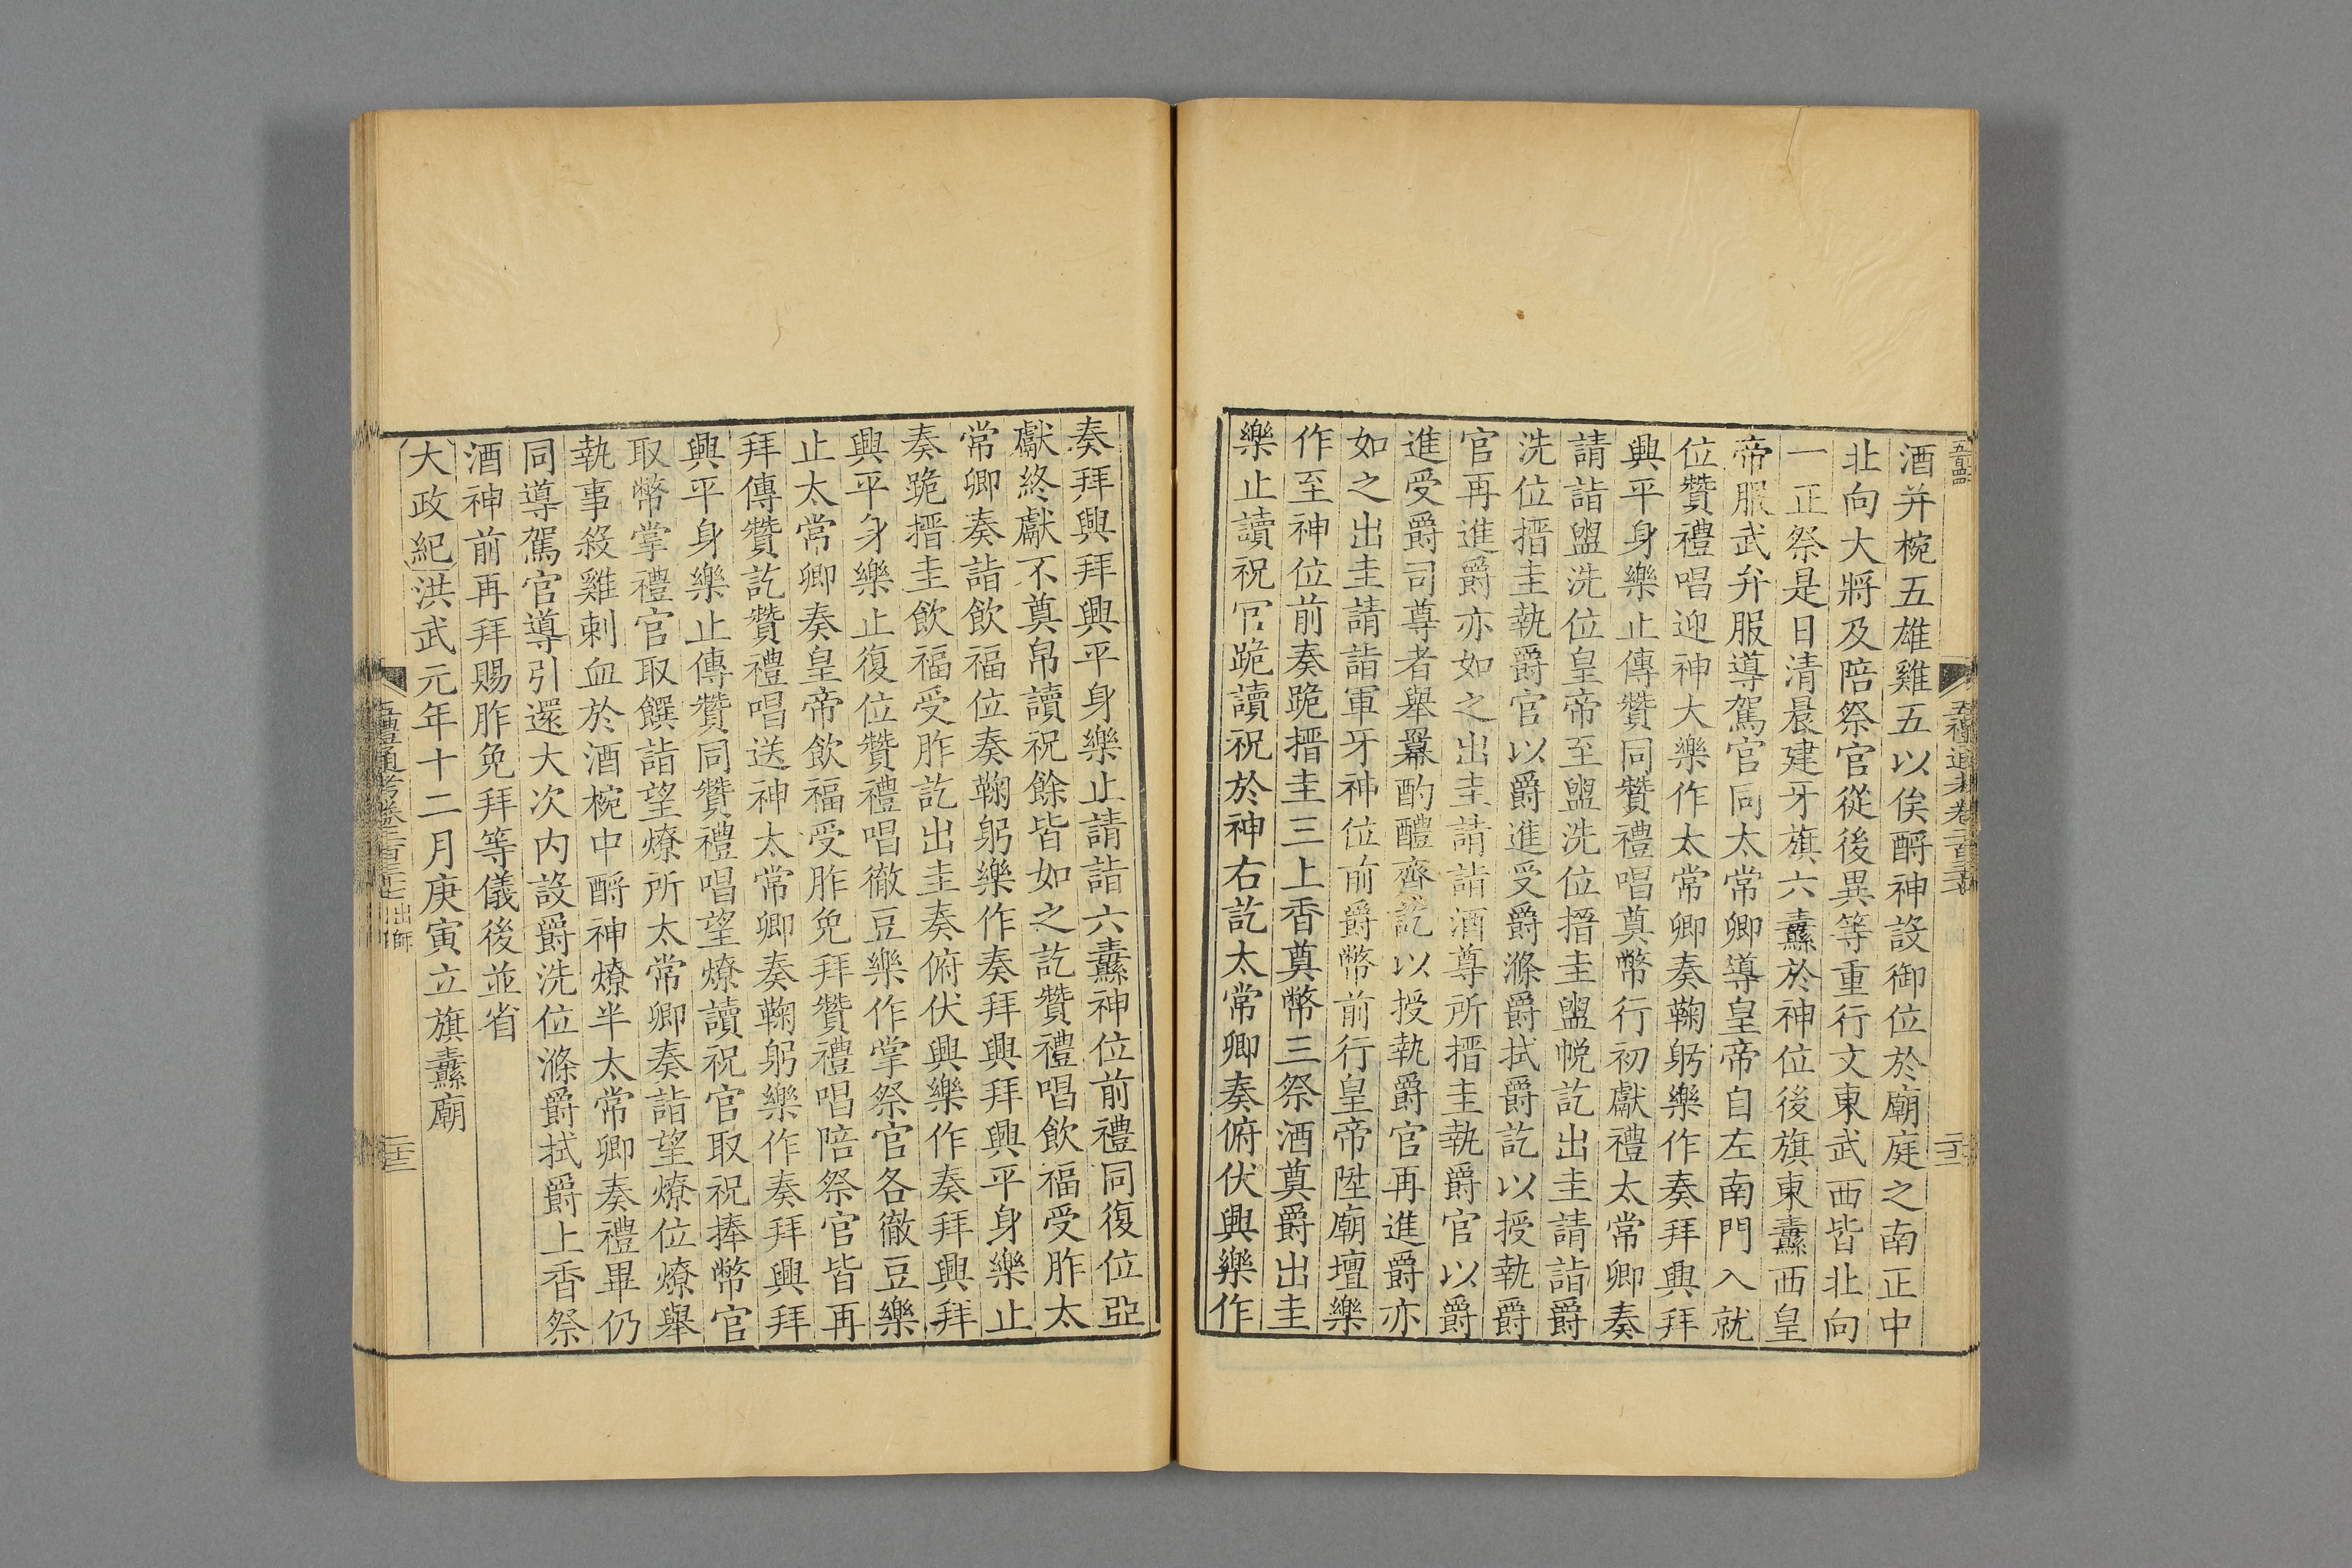 酒并椀五雄雞五以俟酹神設御位於廟庭之南正中
北向大將及陪祭官從後異等重行文東武西皆北向
一正祭是日清晨建牙旗六纛於神位後旗東纛西皇
帝服武弁服導駕官同太常卿導皇帝自左南門入就
位贊禮唱迎神大樂作太常卿奏鞠躬樂作奏拜興拜
興平身樂止傳贊同贊禮唱奠幣行初獻禮太常卿奏
請詣盥洗位皇帝至盥洗位搢圭盥帨訖出圭請詣爵
洗位搢圭執爵官以爵進受爵滌爵拭爵訖以授執爵
官再進爵亦如之出圭請詣酒尊所搢圭執爵官以爵
進受爵司尊者舉羃酌醴齊訖以授執爵官再進爵亦
如之出圭請詣軍牙神位前爵幣前行皇帝陞廟壇樂
作至神位前奏跪搢圭三上香奠幣三祭酒奠爵出圭
樂止讀祝官跪讀祝於神右訖太常卿奏俯伏興樂作
奏拜興拜興平身樂止請詣六纛神位前禮同復位亞
獻終獻不奠帛讀祝餘皆如之訖贊禮唱飲福受胙太
常卿奏詣飲福位奏鞠躬樂作奏拜興拜興平身樂止
奏跪搢圭飲福受胙訖出圭奏俯伏興樂作奏拜興拜
興平身樂止復位贊禮唱徹豆樂作掌祭官各徹豆樂
止太常卿奏皇帝飲福受胙免拜贊禮唱陪祭官皆再
拜傳贊訖贊禮唱送神太常卿奏鞠躬樂作奏拜興拜
興平身樂止傳贊同贊禮唱望燎讀祝官取祝捧幣官
取幣掌禮官取饌詣望燎所太常卿奏詣望燎位燎舉
執事殺雞刺血於酒椀中酹神燎半太常卿奏禮畢仍
同導駕官導引還大次內設爵洗位滌爵拭爵上香祭
酒神前再拜賜胙免拜等儀後並省
大政紀洪武元年十二月庚寅立旗纛廟
五禮通考卷二百三十七 出師
二十三